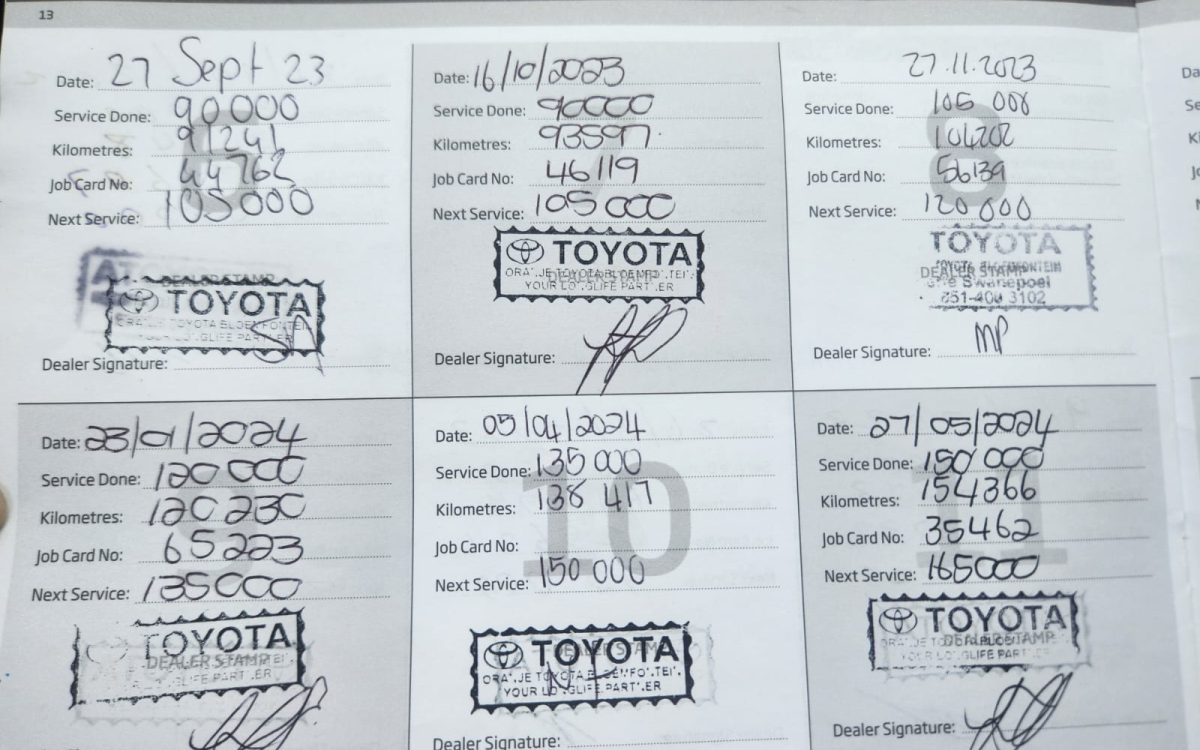 13
Date: 27 Sept 23
Service Done: 90000
Kilometres: 91241
Job Card No: 44762
Next Service: 105000
DEALER STAMP
TOYOTA
ORANJE TOYOTA BLOEMFONTEIN
YOUR LONGLIFE PARTNER
Dealer Signature:
Date: 16/10/2023
Service Done: 90000
Kilometres: 93597
Job Card No: 46119
Next Service: 105 000
TOYOTA
ORANJE TOYOTA BLOEMFONTEIN
YOUR LONGLIFE PARTNER
Dealer Signature:
8
Date: 27.11.2023
Service Done: 105 000
Kilometres: 106202
Job Card No: 56139
Next Service: 120 000
TOYOTA
TOYOTA BLOEMFONTEIN
DEALER STAMP
Swanepoel
051-400 3102
Dealer Signature: MP
9
Date: 23/01/2024
Service Done: 120 000
Kilometres: 120 230
Job Card No: 65223
Next Service: 135000
TOYOTA
DEALER STAMP
10
Date: 05/04/2024
Service Done: 135 000
Kilometres: 138 417
Job Card No:
Next Service: 150 000
DEALER STAMP
TOYOTA
ORANJE TOYOTA BLOEMFONTEIN
YOUR LONGLIFE PARTNER
Dealer Signature:
11
Date: 27/05/2024
Service Done: 150 000
Kilometres: 154366
Job Card No: 35462
Next Service: 165000
TOYOTA
DEALER STAMP
YOUR LONGLIFE PARTNER
Dealer Signature: